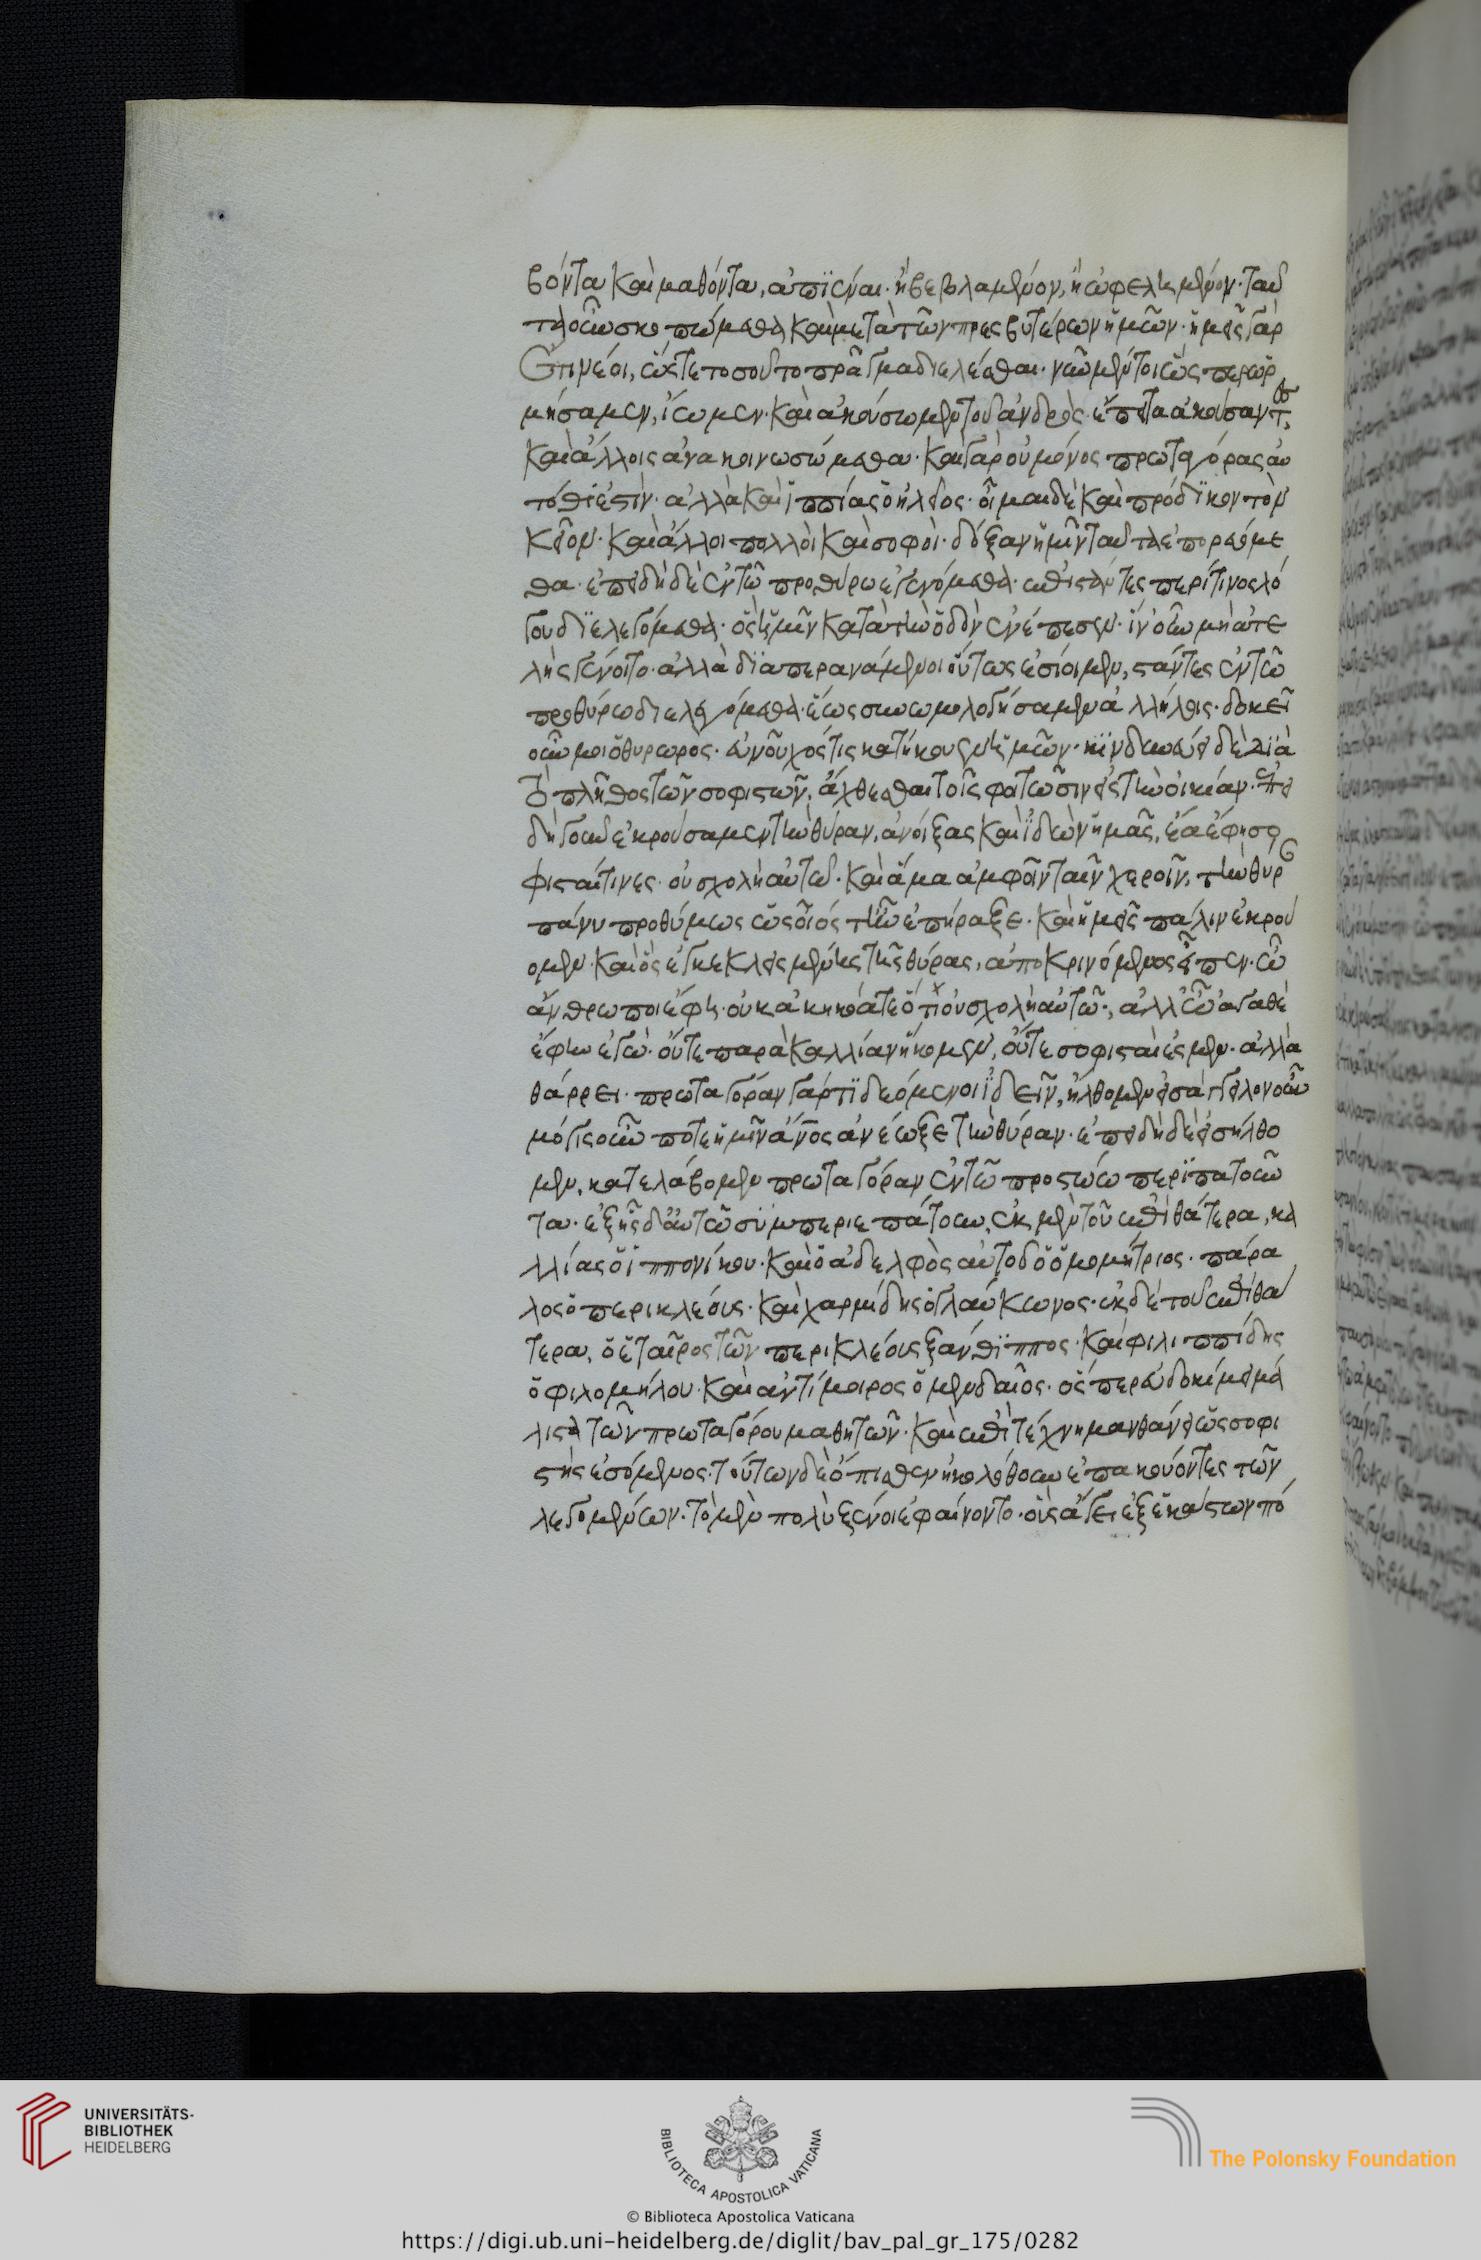 βόντα καὶ μαθόντα, ἀπϊέναι· ἢ βεβλαμμένον, ἢ ὠφελημένον· ταῦ
τα οὖν σκοπώμεθα καὶ μετὰ τῶν πρεσβυτέρων ἡμῶν· ἡμεῖς γὰρ
ἔτι νέοι, ὥστε τοσοῦτο πρᾶγμα διελέσθαι· νῦν μέντοι ὥσπερ ὡρ
μήσαμεν, ἴωμεν· καὶ ἀκούσωμεν τοῦ ἀνδρός· ἔπειτα ἀκούσαντες
καὶ ἄλλοις ἀνακοινωσώμεθα· καὶ γὰρ οὐ μόνος πρωταγόρας αὐ
τόθι ἐστὶν· ἀλλὰ καὶ ἱππίας ὁ ἠλεῖος· οἶμαι δὲ καὶ πρόδϊκον τὸν
κεῖον· καὶ ἄλλοι πολλοὶ καὶ σοφοί· δόξαν ἡμῖν ταῦτα ἐπορευόμε
θα· ἐπειδὴ δὲ ἐν τῶ προθύρω ἐγενόμεθα· ἐπιστάντες περί τινος λό
γου δϊελεγόμεθα· ὃς ἡμῖν κατὰ τὴν ὁδὸν ἐνέπεσεν· ἵν' οὖν μὴ ἀτε
λὴς γένοιτο· ἀλλὰ δϊαπερανάμενοι οὕτως ἐσίοιμεν, στάντες ἐν τῶ
προθύρω διελεγόμεθα· ἕως συνωμολογήσαμεν ἀλλήλοις· δοκεῖ
οὖν μοι ὁ θυρωρός· εὐνοῦχός τις κατήκουεν ἡμῶν· κϊνδυνεύει δὲ δϊὰ
τὸ πλῆθος τῶν σοφιστῶν, ἄχθεσθαι τοῖς φοιτῶσιν εἰς τὴν οἰκίαν· ἐπει
δὴ γοῦν ἐκρούσαμεν τὴν θύραν, ἀνοίξας καὶ ἰδὼν ἡμᾶς, ἔα ἔφη σο
φισταί τινες· οὐ σχολὴ αὐτῶ· καὶ ἅμα ἀμφοῖν ταῖν χεροῖν, τὴν θύραν
πάνυ προθύμως ὡς οἷός τ' ἦν ἐπήραξε· καὶ ἡμεῖς πάλιν ἐκρού
ομεν· καὶ ὃς ἐγκεκλειμένης τῆς θύρας, ἀποκρινόμενος εἶπεν· ὦ
ἄνθρωποι ἔφη· οὐκ ἀκηκόατε ὅτι οὐ σχολὴ αὐτῶ·, ἀλλ' ὦ ἀγαθὲ
ἔφην ἐγώ· οὔτε παρὰ καλλίαν ἥκομεν, οὔτε σοφισταὶ ἐσμεν· ἀλλὰ
θάρρει· πρωταγόραν γάρ τϊ δεόμενοι ἰδεῖν, ἤλθομεν εἰσάγγειλον οὖν
μόγις οὖν ποτε ἡμῖν ἄνος ἀνέωξε τὴν θύραν· ἐπειδὴ δὲ εἰσήλθο
μεν, κατελάβομεν πρωταγόραν ἐν τῶ προστώω περϊπατοῦν
τα· ἑξῆς δ' αὐτῶ συμπεριεπάτουν, ἐκ μὲν τοῦ ἐπὶ θάτερα, κα
λλίας ὁ ἱππονίκου· καὶ ὁ ἀδελφὸς αὐτοῦ ὁ ὁμομήτριος· πάρα
λος ὁ περικλέους· καὶ χαρμίδης ὁ γλαύκωνος· ἐκ δὲ τοῦ ἐπὶ θά
τερα, ὁ ἕταιρος τῶν περικλέους ξάνθϊππος· καὶ φιλιππίδης
ὁ φιλομήλου· καὶ ἀντίμοιρος ὁ μενδαῖος· ὅσπερ εὐδοκίμει μά
λιστα τῶν πρωταγόρου μαθητῶν· καὶ ἐπὶ τέχνη μανθάνει ὡς σοφι
στὴς ἐσόμενος· τούτων δὲ ὄπισθεν ἠκολούθουν ἐπακούοντες τῶν
λεγομένων· τὸ μὲν πολὺ ξένοι ἐφαίνοντο· οὓς ἄγει ἐξ ἑκάστων πό
UNIVERSITÄTS-
BIBLIOTHEK
HEIDELBERG
BIBLIOTECA APOSTOLICA VATICANA
The Polonsky Foundation
© Biblioteca Apostolica Vaticana
https://digi.ub.uni-heidelberg.de/diglit/bav_pal_gr_175/0282